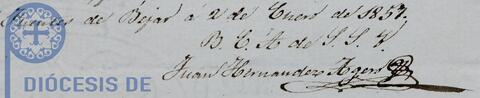 Fuentes de Bejar á 2 de Enero de 1857.
B. L. A. de S. S. Y.
Juan Hernandez Agero
DIÓCESIS DE